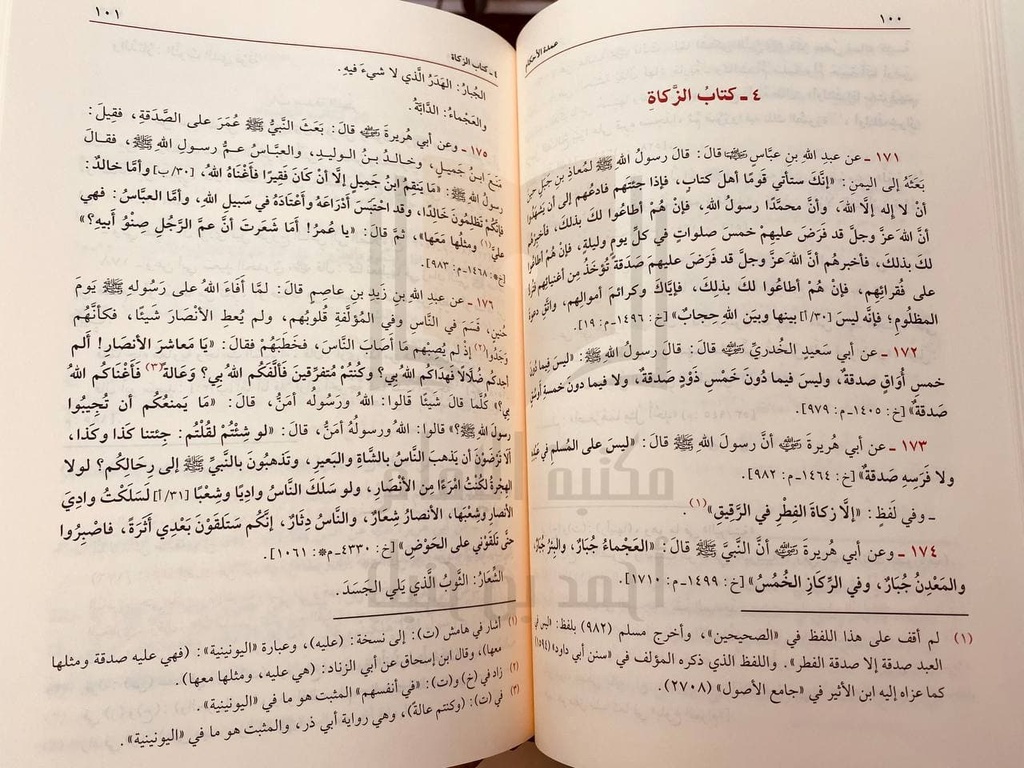 ١٠٠
عمدة الأحكام
٤ ـ كتابُ الزَّكاةِ
١٧١ ـ عن عبدِ اللهِ بنِ عبَّاسٍ ﷺ قالَ: قالَ رسولُ اللهِ ﷺ لمُعاذِ بنِ جَبَلٍ حينَ
بَعَثَهُ إلى اليمنِ: «إنَّكَ ستأتي قومًا أهلَ كتابٍ، فإذا جئتَهم فادعُهم إلى أن يَشهَدُوا
أنْ لا إلهَ إلَّا اللهُ، وأنَّ محمَّدًا رسولُ اللهِ، فإنْ هُمْ أطاعُوا لكَ بذلكَ، فأخبِرْهم
أنَّ اللهَ عزَّ وجلَّ قد فرَضَ عليهمْ خمسَ صلواتٍ في كلِّ يومٍ وليلةٍ، فإنْ هُمْ أطاعُوا
لكَ بذلكَ، فأخبرهُم أنَّ اللهَ عزَّ وجلَّ قد فرَضَ عليهم صَدَقةً تُؤخَذُ مِن أغنيائِهِم فتُردُّ
على فُقرائِهِم، فإنْ هُمْ أطاعُوا لكَ بذلِكَ، فإيَّاكَ وكَرائمَ أموالِهِم، واتَّقِ دعوةَ
المظلُومِ؛ فإنَّهُ ليسَ [٣٠/أ] بينها وبينَ اللهِ حِجابٌ» [خ: ١٤٩٦ـ م: ١٩].
١٧٢ ـ عن أبي سَعيدٍ الخُدريِّ قالَ: قالَ رسولُ اللهِ ﷺ: «ليسَ فِيما دُونَ
خمسِ أَوَاقٍ صدقةٌ، وليسَ فيما دُونَ خَمْسِ ذَوْدٍ صَدقةٌ، ولا فيما دونَ خمسةِ أَوْسُقٍ
صَدقةٌ» [خ: ١٤٠٥ـ م: ٩٧٩].
١٧٣ ـ عن أبي هُريرةَ أنَّ رسولَ اللهِ ﷺ قالَ: «ليسَ على المُسلمِ في عَبْدِهِ
ولا فَرَسِهِ صَدقةٌ» [خ: ١٤٦٤ـ م: ٩٨٢].
ـ وفي لَفظٍ: «إلَّا زكاةَ الفِطْرِ في الرَّقيقِ»(١).
١٧٤ ـ وعن أبي هُريرةَ أنَّ النبيَّ ﷺ قالَ: «العَجْماءُ جُبَارٌ، والبِئرُ جُبَارٌ،
والمَعْدِنُ جُبَارٌ، وفي الرِّكازِ الخُمُسُ» [خ: ١٤٩٩ـ م: ١٧١٠].
(١) لم أقف على هذا اللفظ في «الصحيحين»، وأخرج مسلم (٩٨٢) بلفظ: «ليس في
العبد صدقة إلا صدقة الفطر». واللفظ الذي ذكره المؤلف في «سنن أبي داود» (١٥٩٤)
كما عزاه إليه ابن الأثير في «جامع الأصول» (٢٧٠٨).
١٠١
٤ ـ كتاب الزكاة
الجُبارُ: الهَدَرُ الَّذي لا شيءَ فيهِ.
والعَجْماءُ: الدَّابَّةُ.
١٧٥ ـ وعن أبي هُريرةَ قالَ: بَعَثَ النبيُّ ﷺ عُمَرَ على الصَّدَقةِ، فقِيلَ:
مَنَعَ ابنُ جَميلٍ، وخالدُ بنُ الوليدِ، والعبَّاسُ عمُّ رسولِ اللهِ ﷺ، فقالَ
رسولُ اللهِ ﷺ: «مَا يَنقِمُ ابنُ جَميلٍ إلَّا أنْ كَانَ فَقيرًا فأغْناهُ اللهُ، [٣٠/ب] وأمَّا خالدٌ:
فإنَّكُم تَظلِمُونَ خَالدًا، وقد احْتَبسَ أَدْرَاعَهُ وأعْتادَهُ في سَبيلِ اللهِ، وأمَّا العبَّاسُ: فهِي
عليَّ(١) ومثلُها مَعَها»، ثمَّ قالَ: «يا عُمرُ! أمَا شَعَرتَ أنَّ عمَّ الرَّجُلِ صِنْوُ أبيهِ؟»
[خ*: ١٤٦٨ـ م: ٩٨٣].
١٧٦ ـ عن عبدِ اللهِ بنِ زَيدِ بنِ عاصِمٍ قالَ: لمَّا أفَاءَ اللهُ على رَسُولِهِ ﷺ يَومَ
حُنينٍ، قَسَمَ في النَّاسِ وفي المؤلَّفةِ قلوبُهم، ولم يُعطِ الأنْصَارَ شيئًا، فكأنَّهُم
وَجَدُوا(٢) إذ لم يُصِبْهم مَا أصَابَ النَّاسَ، فخَطَبَهُمْ فقالَ: «يَا مَعاشرَ الأنصَارِ! أَلم
أجِدكُم ضُلَّالًا فهَداكُم اللهُ بِي؟ وكُنْتُم مُتفرِّقينَ فألَّفَكُم اللهُ بِي؟ وَعَالةً(٣) فأغْناكُم اللهُ
بِي؟» كُلَّما قالَ شَيئًا قالوا: اللهُ ورَسُولُه أمَنُّ، قالَ: «مَا يَمنعُكُم أن تُجيبُوا
رسولَ اللهِ ﷺ؟» قالوا: اللهُ ورسولُهُ أمَنُّ، قالَ: «لو شِئْتُمْ لقُلْتُم: جِئتَنا كَذا وكَذا،
ألَا تَرْضَوْنَ أن يَذهبَ النَّاسُ بالشَّاةِ والبَعيرِ، وتَذهبُونَ بالنَّبيِّ ﷺ إلى رِحَالِكُم؟ لولا
الهِجْرةُ لَكُنْتُ امْرَءًا مِن الأنْصَارِ، ولو سَلَكَ النَّاسُ واديًا وشِعْبًا [٣١/أ] لَسَلَكْتُ وادِيَ
الأنصارِ وشِعْبَها، الأنصارُ شِعَارٌ، والنَّاسُ دِثَارٌ، إنَّكُم سَتَلقَوْنَ بَعْدِي أثَرَةً، فَاصْبِرُوا
حتَّى تَلقَوْني على الحَوْضِ» [خ: ٤٣٣٠ـ م*: ١٠٦١].
الشِّعَارُ: الثَّوبُ الَّذي يَلي الجَسَدَ.
(١) أشار في هامش (ت): إلى نسخة: (عليه)، وعبارة «اليونينية»: (فهي عليه صدقة ومثلها
معها)، وقال ابن إسحاق عن أبي الزناد: (هي عليه، ومثلها معها).
(٢) زاد في (خ) و(ت): «في أنفسهم» المثبت هو ما في «اليونينية».
(٣) في (ت): (وكنتم عالة)، وهي رواية أبي ذر، والمثبت هو ما في «اليونينية».
مكتبة